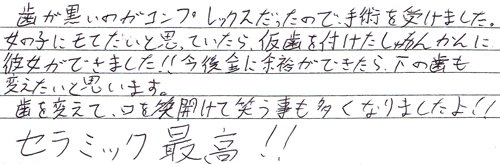 歯が黒いのがコンプレックスだったので、手術を受けました。
女の子にモテたいと思っていたら、仮歯を付けたしゅんかんに
彼女ができました!!今後金に余裕ができたら、下の歯も
変えたいと思います。
歯を変えて、口を開けて笑う事も多くなりましたよ!!
セラミック最高!!